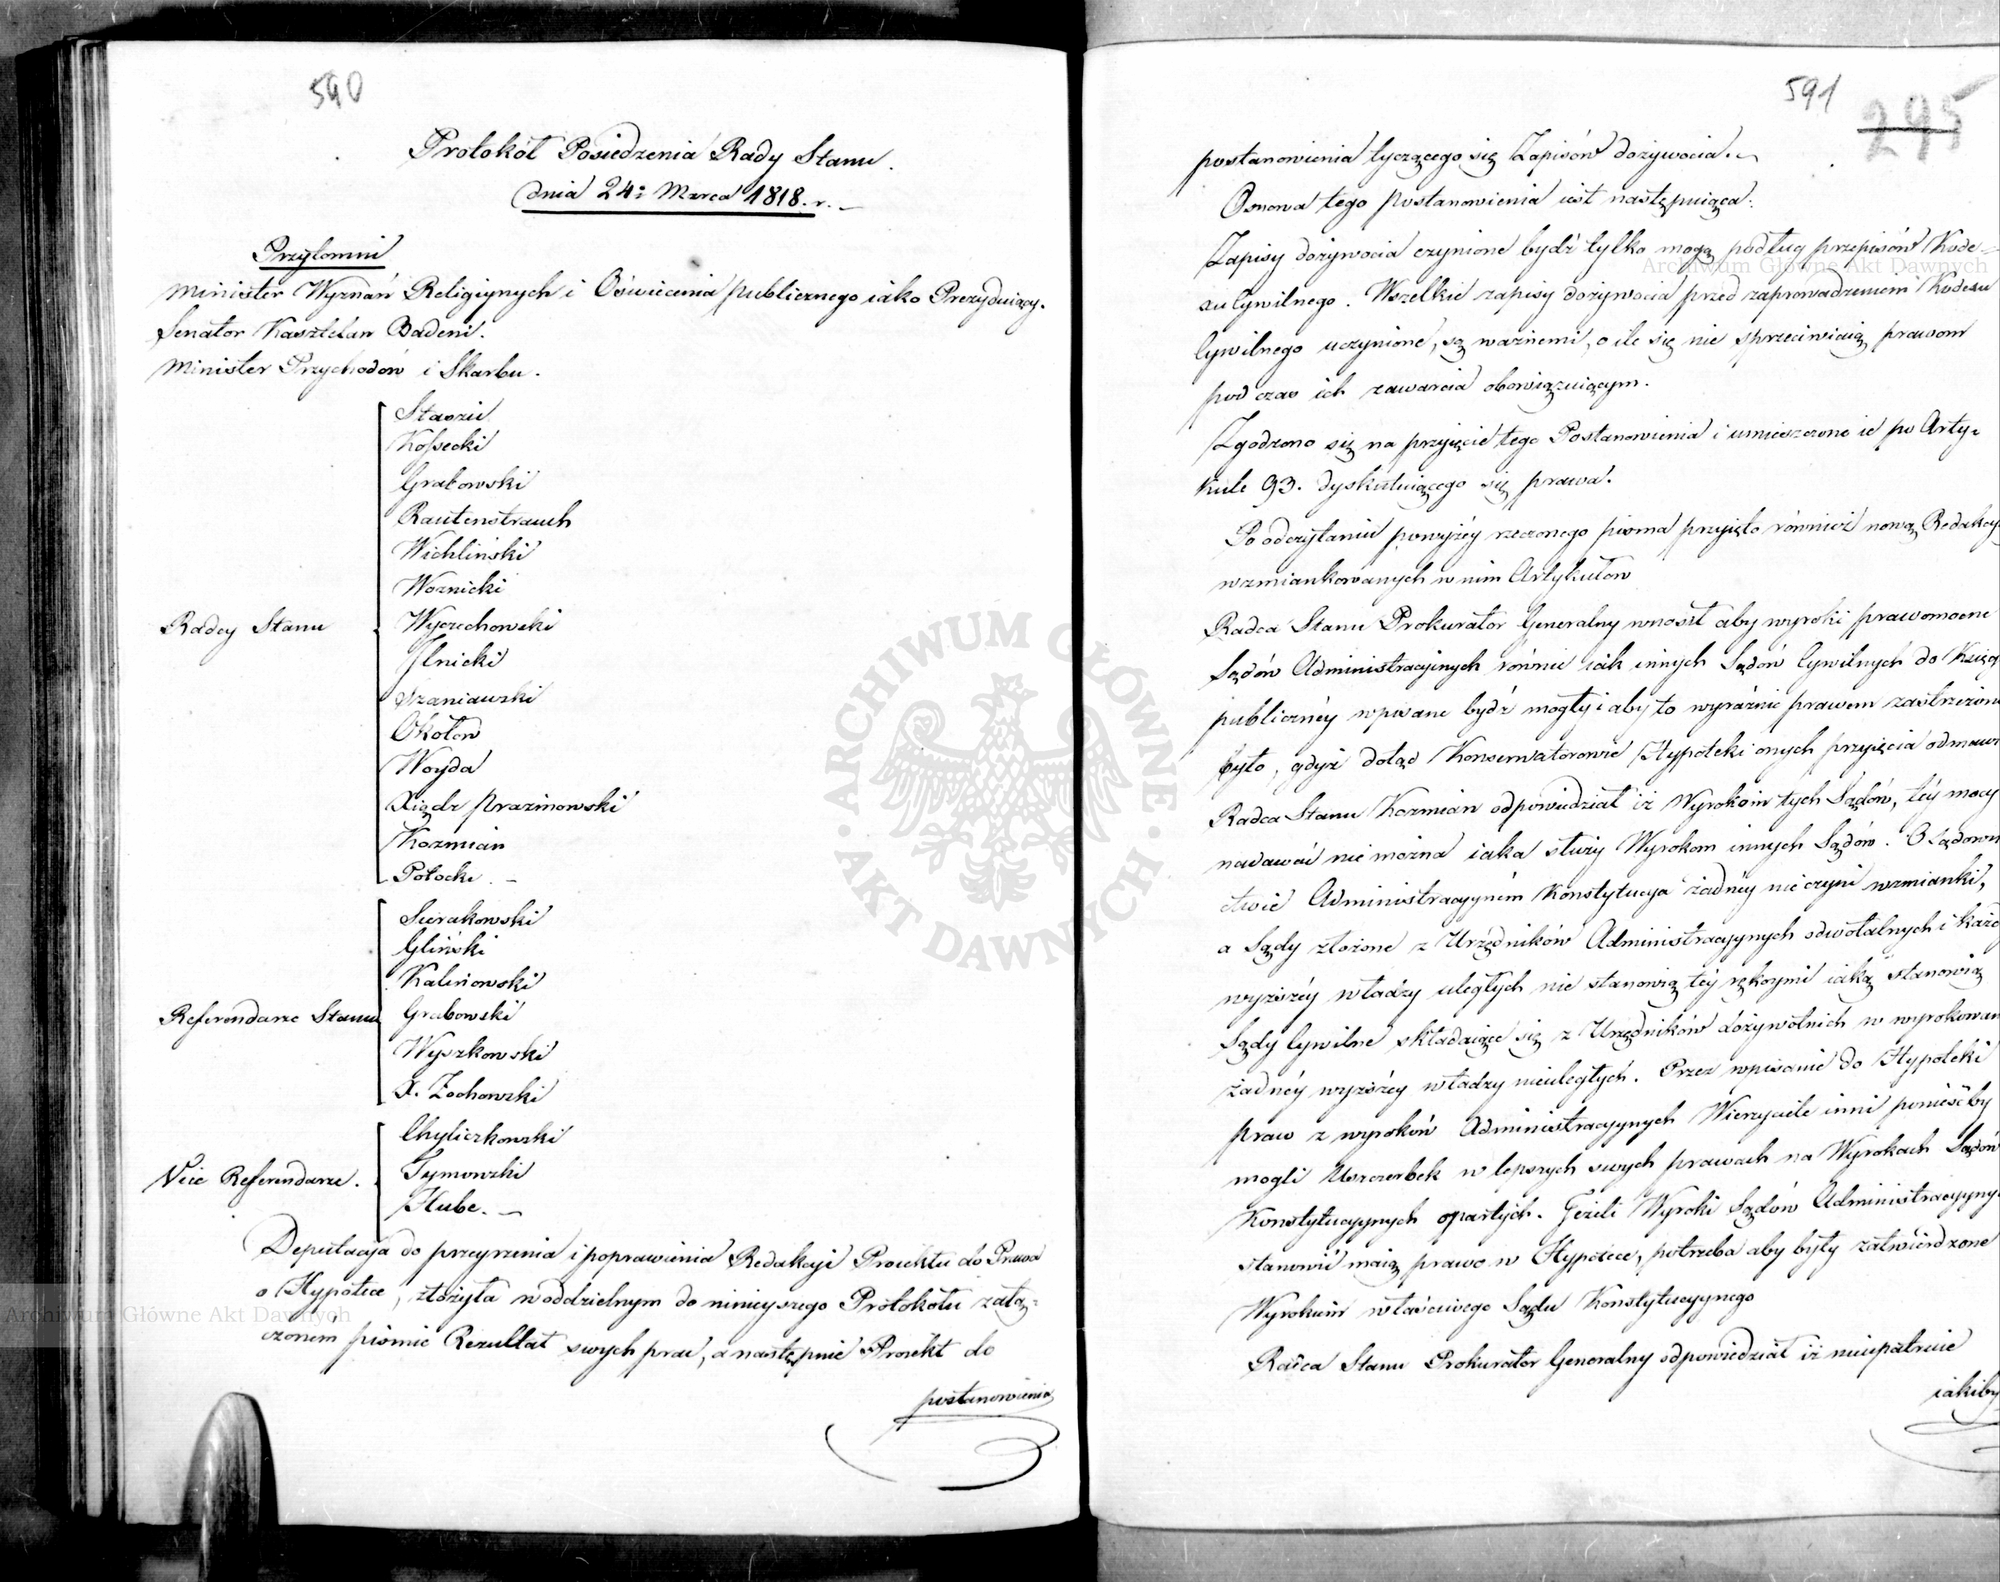 590
Protokół Posiedzenia Rady Stanu.
dnia 24º Marca 1818. r. —
Przytomni
Minister Wyznań Religiynych i Oświecenia publicznego iako Prezyduiący.
Senator Kasztelan Badeni.
Minister Przychodów i Skarbu.
Staszic
Kossecki
Grabowski
Rautenstrauch
Wichliński
Woznicki
Radcy Stanu
Wyczechowski
Ilnicki
Szaniawski
Okołow
Woyda
Xiądz Prazmowski
Kozmian
Potocki. —
Sierakowski
Gliński
Kalinowski
Referendarze Stanu
Grabowski
Wyszkowski
X. Zochowski
Chyliczkowski
Vice Referendarze.
Tymowski
Hube. —
Deputacja do przeyrzenia i poprawienia Redakcji Proiektu do Prawa
o Hypotece, złożyła w oddzielnym do ninieyszego Protokołu załą=
czonem pismie Rezultat swych prac, a następnie Proiekt do
postanowienia
591
295
postanowienia tyczącego się Zapisów dożywocia. ~
Osnowa tego postanowienia iest następuiąca:
Zapisy dożywocia czynione bydź tylko mogą podług przepisów Kode=
xu Cywilnego. Wszelkie zapisy dożywocia przed zaprowadzeniem Kodexu
Cywilnego uczynione, są ważnemi, o ile się nie sprzeciwiaią prawom
pod czas ich zawarcia obowiązuiącym.
Zgodzono się na przyięcie tego Postanowienia i umieszczenie ie po Arty=
kule 93. dyskutuiącego się prawa.
Po odczytaniu powyżéy rzeczonego pisma przyięto również nową Redakcyę
wzmiankowanych w nim Artykułów
Radca Stanu Prokurator Generalny wnosił aby wyroki prawomocne
Sądów Administracyinych równie iak innych Sądów Cywilnych do Xięgi
publicznéy wpisane bydź mogły i aby to wyraźnie prawem zastrzeżone
było, gdyż dotąd Konserwatorowie Hypoteki onych przyięcia odmawi
Radca Stanu Kozmian odpowiedział iż Wyrokom tych Sądów, téy mocy
nadawać nie można iaka służy Wyrokom innych Sądów. O Sądowni
ctwie Administracyyném Konstytucya żadnéy nie czyni wzmianki,
a Sądy złożone z Urzędników Administracyynych odwołalnych i każd
wyższéy władzy uległych nie stanowią téy rękoymi iaką stanowią
Sądy Cywilne składaiące się z Urzędników dożywotnich w wyrokowan
żadnéy wyższéy władzy nieuległych. Przez wpisanie do Hypoteki
praw z wyroków Administracyynych Wierzyciele inni ponieśćby
mogli Uszczerbek w lepszych swych prawach na Wyrokach Sądów
Konstytucyynych opartych. Jeżeli Wyroki Sądów Administracyyny
stanowić maią prawo w Hypotece, potrzeba aby były zatwierdzone
Wyrokiem właściwego Sądu Konstytucyynego
Radca Stanu Prokurator Generalny odpowiedział iż nieupatruie
iakiby
Archiwum Główne Akt Dawnych
Archiwum Główne Akt Dawnych
· ARCHIWUM GŁÓWNE · AKT DAWNYCH